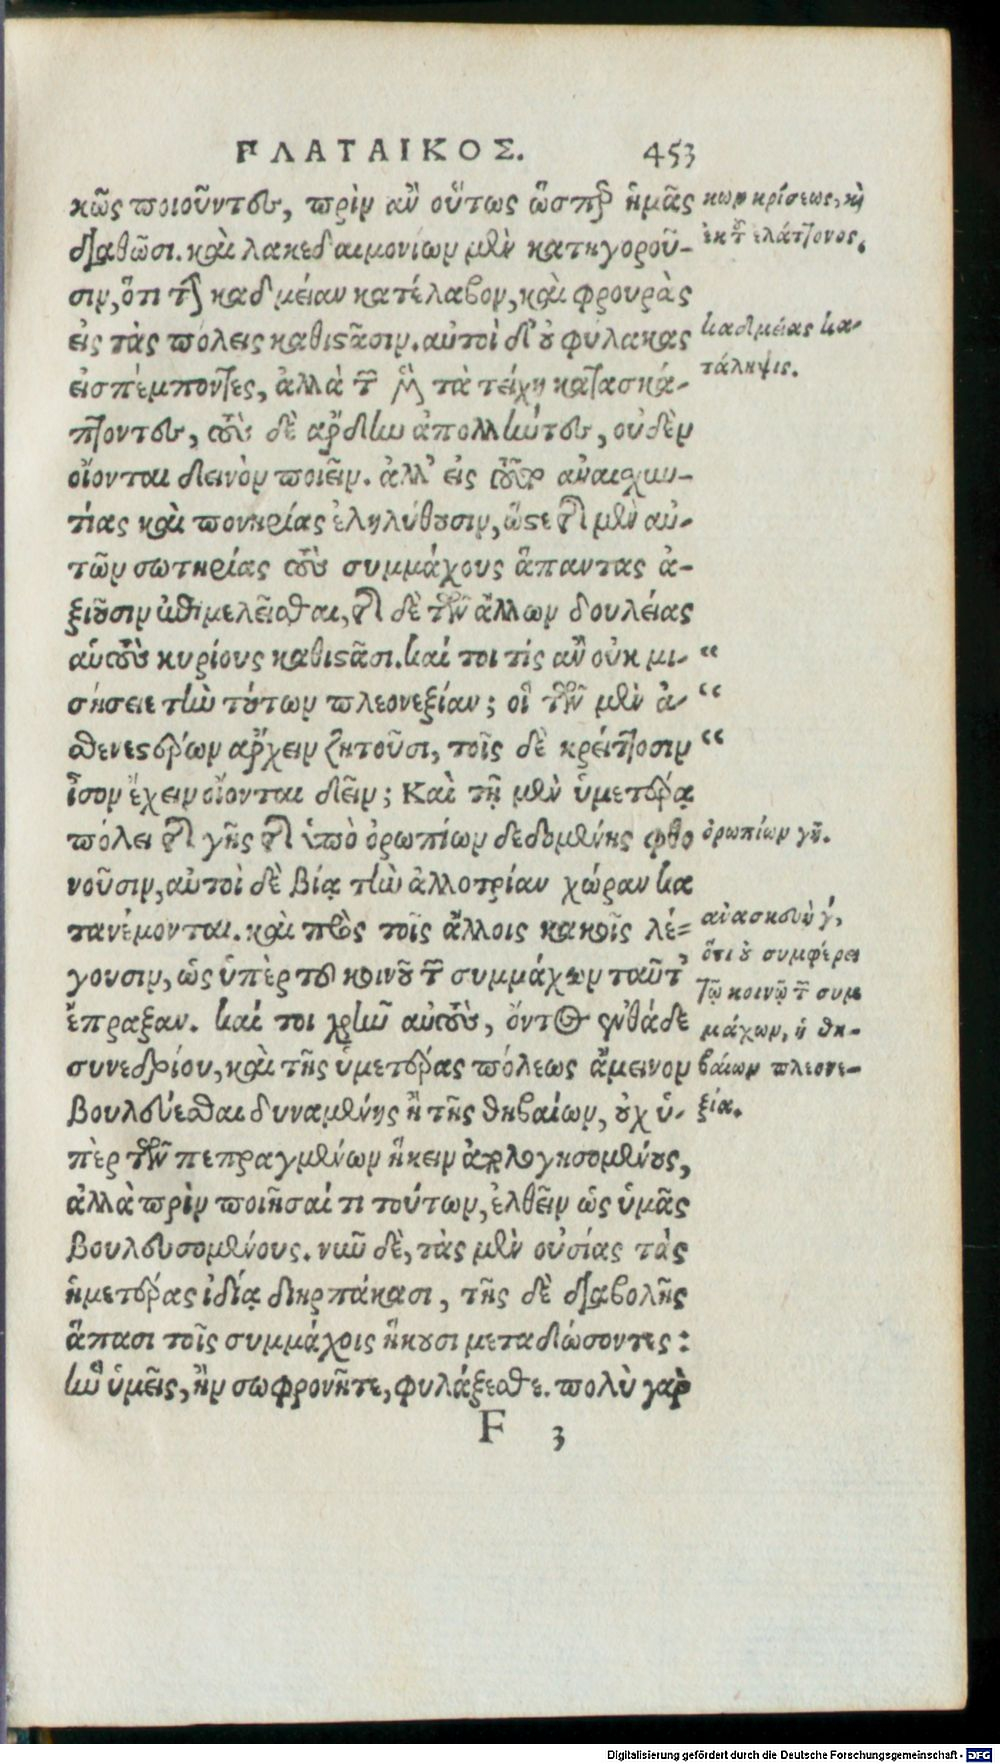 ΠΛΑΤΑΙΚΟΣ. 453
κῶς ποιοῦντες, πρὶν ἂν οὕτως ὥσπερ ἡμᾶς
διαθῶσι. καὶ λακεδαιμονίων μὲν κατηγοροῦ-
σιν, ὅτι τὴν καδμείαν κατέλαβον, καὶ φρουρὰς
εἰς τὰς πόλεις καθιστᾶσιν. αὐτοὶ δ' οὐ φύλακας
εἰσπέμποντες, ἀλλὰ τῶν μὲν τὰ τείχη κατασκά-
πτοντες, τοὺς δὲ ἄρδην ἀπολλύντες, οὐδὲν
οἴονται δεινὸν ποιεῖν. ἀλλ' εἰς τοῦτο ἀναισχυν-
τίας καὶ πονηρίας ἐληλύθουσιν, ὥστε τῆς μὲν αὑ-
τῶν σωτηρίας τοὺς συμμάχους ἅπαντας ἀ-
ξιοῦσιν ἐπιμελεῖσθαι, τῆς δὲ τῶν ἄλλων δουλείας
αὑτοὺς κυρίους καθιστᾶσι. καί τοι τίς ἂν οὐκ μι- “
σήσειε τὴν τούτων πλεονεξίαν; οἳ τῶν μὲν ἀ- “
σθενεστέρων ἄρχειν ζητοῦσι, τοῖς δὲ κρείττοσιν “
ἶσον ἔχειν οἴονται δεῖν; Καὶ τῇ μὲν ὑμετέρᾳ
πόλει τῆς γῆς τῆς ὑπὸ ὀρωπίων δεδομένης φθο
νοῦσιν, αὐτοὶ δὲ βίᾳ τὴν ἀλλοτρίαν χώραν κα
τανέμονται. καὶ πρὸς τοῖς ἄλλοις κακοῖς λέ-
γουσιν, ὡς ὑπὲρ τοῦ κοινοῦ τῶν συμμάχων ταῦτ'
ἔπραξαν. καί τοι χρῆν αὐτοὺς, ὄντος ἐνθάδε
συνεδρίου, καὶ τῆς ὑμετέρας πόλεως ἄμεινον
βουλεύεσθαι δυναμένης ἢ τῆς θηβαίων, οὐχ ὑ-
πὲρ τῶν πεπραγμένων ἥκειν ἀπολογησομένους,
ἀλλὰ πρὶν ποιῆσαί τι τούτων, ἐλθεῖν ὡς ὑμᾶς
βουλευσομένους. νῦν δὲ, τὰς μὲν οὐσίας τὰς
ἡμετέρας ἰδίᾳ διηρπάκασι, τῆς δὲ διαβολῆς
ἅπασι τοῖς συμμάχοις ἥκουσι μεταδώσοντες:
ἣν ὑμεῖς, ἢν σωφρονῆτε, φυλάξεσθε. πολὺ γὰρ
F 3
κων κρίσεως, καὶ
ἐκ τοῦ ἐλάττονος.
καδμείας κα-
τάληψις.
ὀρωπίων γῆ.
ἀνασκευὴ γ,
ὅτι οὐ συμφέρει
τῷ κοινῷ τῶν συμ
μάχων, ἡ θη-
βαίων πλεονε-
ξία.
Digitalisierung gefördert durch die Deutsche Forschungsgemeinschaft - DFG